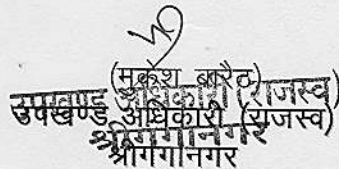 (मुकेश बारैठ)
उपखण्ड अधिकारी (राजस्व)
उपखण्ड अधिकारी (राजस्व)
श्रीगंगानगर
श्रीगंगानगर